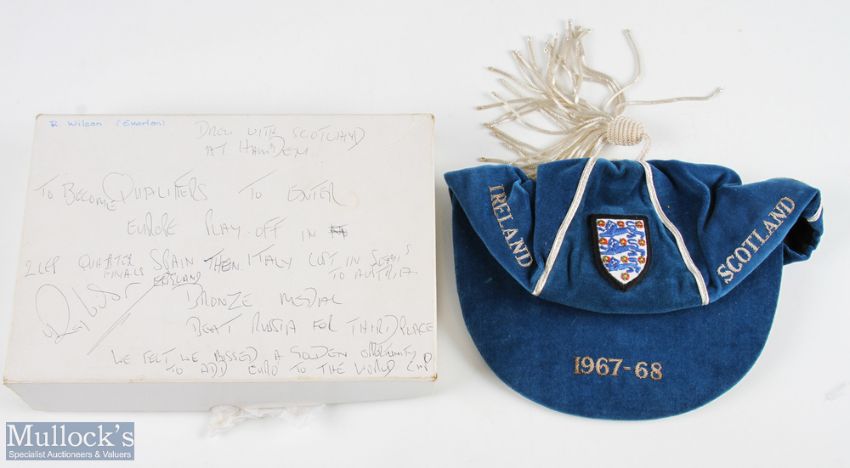 R Wilson (Everton)
DREW WITH SCOTLAND
AT HAMPDEN
TO BECOME QUALIFIERS TO ENTER
EUROPE PLAY-OFF IN
2 LEG QUARTER SPAIN THEN ITALY LOST IN SEMI'S
FINALS ENGLAND TO AUSTRIA
BRONZE MEDAL
BEAT RUSSIA FOR THIRD PLACE
WE FELT WE MISSED A GOLDEN OPPORTUNITY
TO ADD EURO TO THE WORLD CUP
IRELAND
SCOTLAND
1967-68
Mullock's
Specialist Auctioneers & Valuers